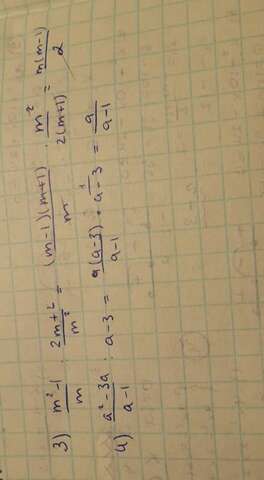 3) \frac{m^2-1}{m} : \frac{2m+2}{m^2} = \frac{(m-1)(m+1)}{m} \cdot \frac{m^2}{2(m+1)} = \frac{m(m-1)}{2}
4) \frac{a^2-3a}{a-1} : a-3 = \frac{a(a-3)}{a-1} \cdot \frac{1}{a-3} = \frac{a}{a-1}